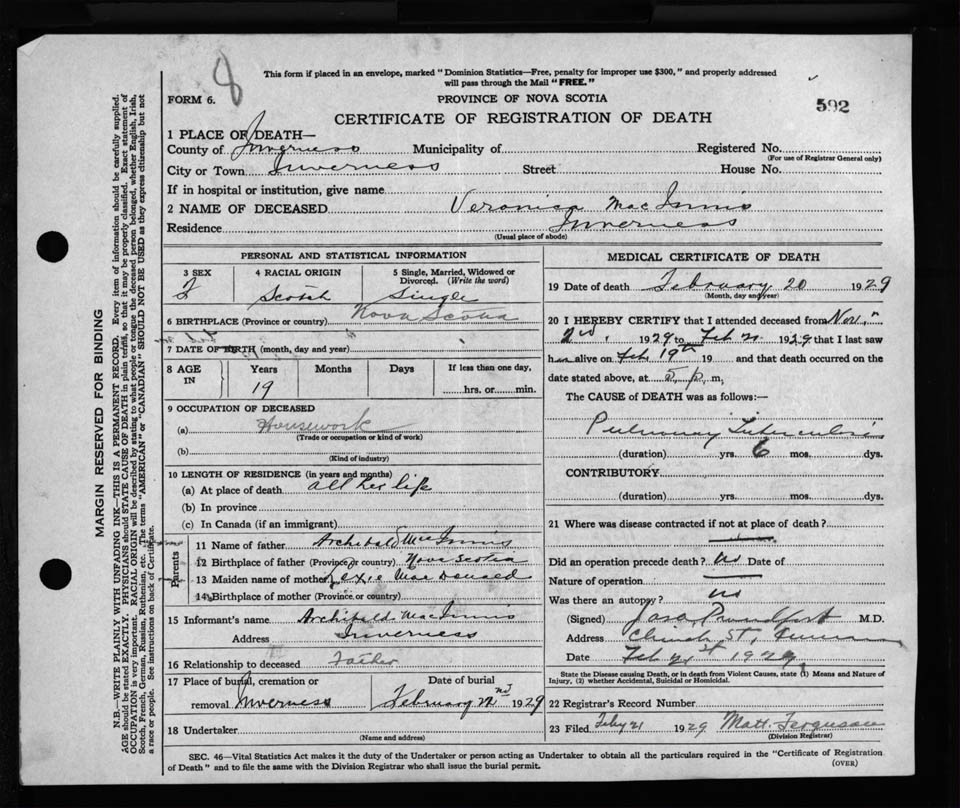 8
This form if placed in an envelope, marked "Dominion Statistics—Free, penalty for improper use $300," and properly addressed
will pass through the Mail "FREE."
FORM 6.
PROVINCE OF NOVA SCOTIA
592
CERTIFICATE OF REGISTRATION OF DEATH
1 PLACE OF DEATH—
County of Inverness Municipality of Registered No.
(For use of Registrar General only)
City or Town Inverness Street House No.
If in hospital or institution, give name
2 NAME OF DECEASED Veronica MacInnis
Residence Inverness
(Usual place of abode)
PERSONAL AND STATISTICAL INFORMATION
3 SEX 4 RACIAL ORIGIN 5 Single, Married, Widowed or
Divorced. (Write the word)
F Scotch Single
6 BIRTHPLACE (Province or country) Nova Scotia
7 DATE OF BIRTH (month, day and year)
8 AGE IN Years Months Days If less than one day,
19 hrs. or min.
9 OCCUPATION OF DECEASED
(a) Housework
(Trade or occupation or kind of work)
(b)
(Kind of industry)
10 LENGTH OF RESIDENCE (in years and months)
(a) At place of death all her life
(b) In province
(c) In Canada (if an immigrant)
Parents
11 Name of father Archibald MacInnis
12 Birthplace of father (Province or country) Nova Scotia
13 Maiden name of mother Lexie MacDonald
14 Birthplace of mother (Province or country)
15 Informant's name Archibald MacInnis
Address Inverness
16 Relationship to deceased Father
17 Place of burial, cremation or Date of burial
removal Inverness February 22nd 1929
18 Undertaker
(Name and address)
MEDICAL CERTIFICATE OF DEATH
19 Date of death February 20 1929
(Month, day and year)
20 I HEREBY CERTIFY that I attended deceased from Nov.
2nd, 1929 to Feb 20 1929 that I last saw
h alive on Feb 19th 19 and that death occurred on the
date stated above, at 5 p m,
The CAUSE of DEATH was as follows:—
Pulmonary Tuberculosis
(duration) yrs. 6 mos. dys.
CONTRIBUTORY
(duration) yrs. mos. dys.
21 Where was disease contracted if not at place of death?
Did an operation precede death? No Date of
Nature of operation
Was there an autopsy? No
(Signed) M.D.
Address Church St,
Date Feb 21st 1929
State the Disease causing Death, or in death from Violent Causes, state (1) Means and Nature of
Injury, (2) whether Accidental, Suicidal or Homicidal.
22 Registrar's Record Number
23 Filed Feby 21 1929 Matt. Ferguson
(Division Registrar)
SEC. 46—Vital Statistics Act makes it the duty of the Undertaker or person acting as Undertaker to obtain all the particulars required in the "Certificate of Registration
of Death" and to file the same with the Division Registrar who shall issue the burial permit.
(OVER)
MARGIN RESERVED FOR BINDING
N.B.—WRITE PLAINLY WITH UNFADING INK—THIS IS A PERMANENT RECORD. Every item of information should be carefully supplied.
AGE should be stated EXACTLY. PHYSICIANS should STATE CAUSE OF DEATH in plain terms, so that it may be properly classified. Exact statement of
OCCUPATION is very important. RACIAL ORIGIN will be described by stating to what people or tongue the deceased person belonged, whether English, Irish,
Scotch, French, German, Russian, Ruthenian, etc. The terms "AMERICAN" or "CANADIAN" SHOULD NOT BE USED as they express citizenship but not
a race or people. See instructions on back of Certificate.